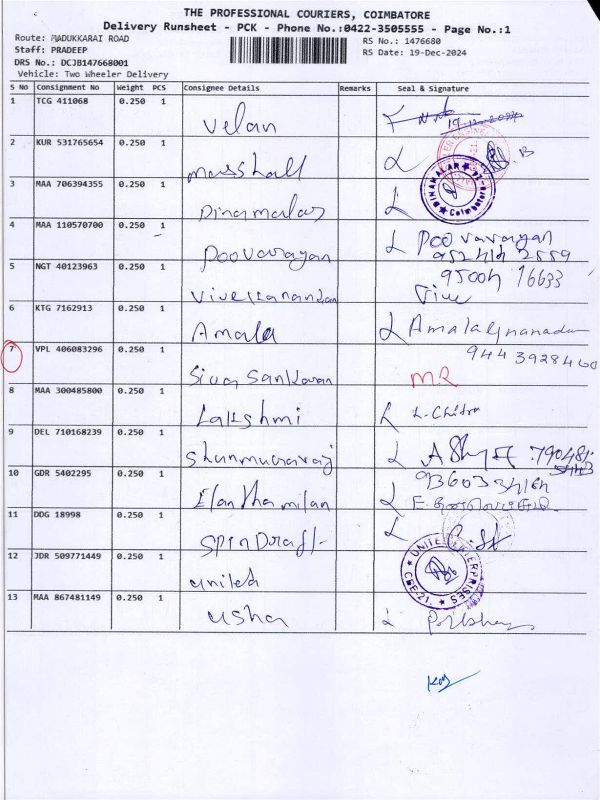 THE PROFESSIONAL COURIERS, COIMBATORE
Delivery Runsheet - PCK - Phone No.:0422-3505555 - Page No.:1
Route: MADUKKARAI ROAD
RS No.: 1476680
Staff: PRADEEP
RS Date: 19-Dec-2024
DRS No.: DCJB147668001
Vehicle: Two Wheeler Delivery
S No Consignment No Weight PCS Consignee Details Remarks Seal & Signature
1 TCG 411068 0.250 1 Velan
2 KUR 531765654 0.250 1 Marshall
3 MAA 706394355 0.250 1 Dinamalar
DINAMALAR Coimbatore
4 MAA 110570700 0.250 1 Poovarayan Poovarayan
5 NGT 40123963 0.250 1 Vivekanandan
95004 16633
6 KTG 7162913 0.250 1 Amala
9443928460
7 VPL 406083296 0.250 1 Siva Sankaran MR
8 MAA 300485800 0.250 1 Lakshmi L. Chitra
9 DEL 710168239 0.250 1
10 GDR 5402295 0.250 1 Elanthamilan
11 DDG 18998 0.250 1
12 JDR 509771449 0.250 1 United
UNITED ENTERPRISES CBE-21.
13 MAA 867481149 0.250 1 Usha